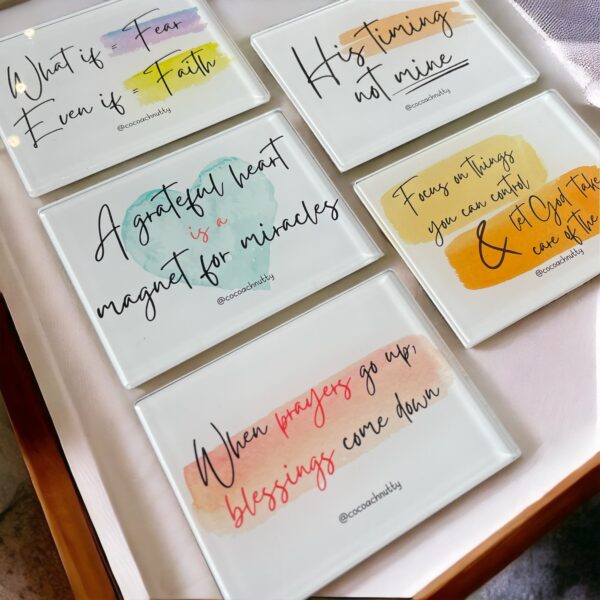 What if = Fear
Even if = Faith
@cocoachnutty
His timing
not mine
@cocoachnutty
A grateful heart
is a
magnet for miracles
@cocoachnutty
Focus on things
you can control
& let God take
care of the
@cocoachnutty
When prayers go up,
blessings come down
@cocoachnutty